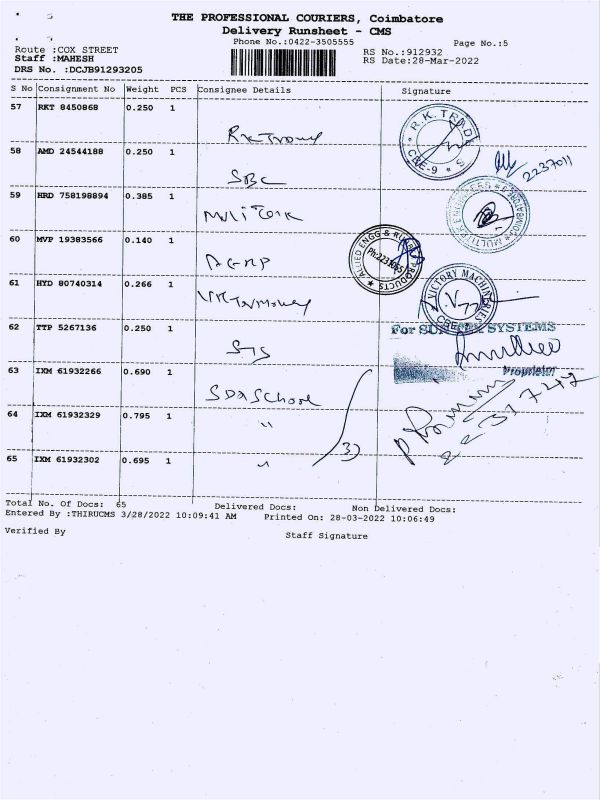 THE PROFESSIONAL COURIERS, Coimbatore
Delivery Runsheet - CMS
Phone No.:0422-3505555
Page No.:5
Route :COX STREET
RS No.:912932
Staff :MAHESH
RS Date:28-Mar-2022
DRS No. :DCJB91293205
S No Consignment No Weight PCS Consignee Details Signature
57 RKT 8450868 0.250 1
R.K. TRADE
CBE-9
58 AMD 24544188 0.250 1
SBC
2237011
59 HRD 758198894 0.385 1
60 MVP 19383566 0.140 1
ALLIED ENGG & PRODUCTS
61 HYD 80740314 0.266 1
VICTORY MACHINERIES
62 TTP 5267136 0.250 1
For SYSTEMS
STS
Proprietor
63 IXM 61932266 0.690 1
SDA School
64 IXM 61932329 0.795 1
"
65 IXM 61932302 0.695 1
"
Total No. Of Docs: 65 Delivered Docs: Non Delivered Docs:
Entered By :THIRUCMS 3/28/2022 10:09:41 AM Printed On: 28-03-2022 10:06:49
Verified By Staff Signature